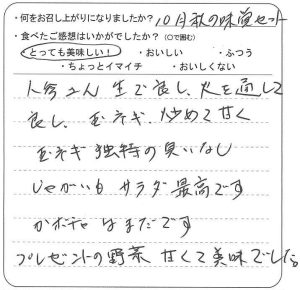 ・何をお召し上がりになりましたか? 10月秋の味覚セット
・食べたご感想はいかがでしたか?(○で囲む)
・とっても美味しい! ・おいしい ・ふつう
・ちょっとイマイチ ・おいしくない
人参さん 生で良し、火を通して
良し、玉ネギ、炒めて甘く
玉ネギ独特の臭いなし
じゃがいも サラダ最高です
かボチャはまだです
プレゼントの野菜 甘くて美味でした。